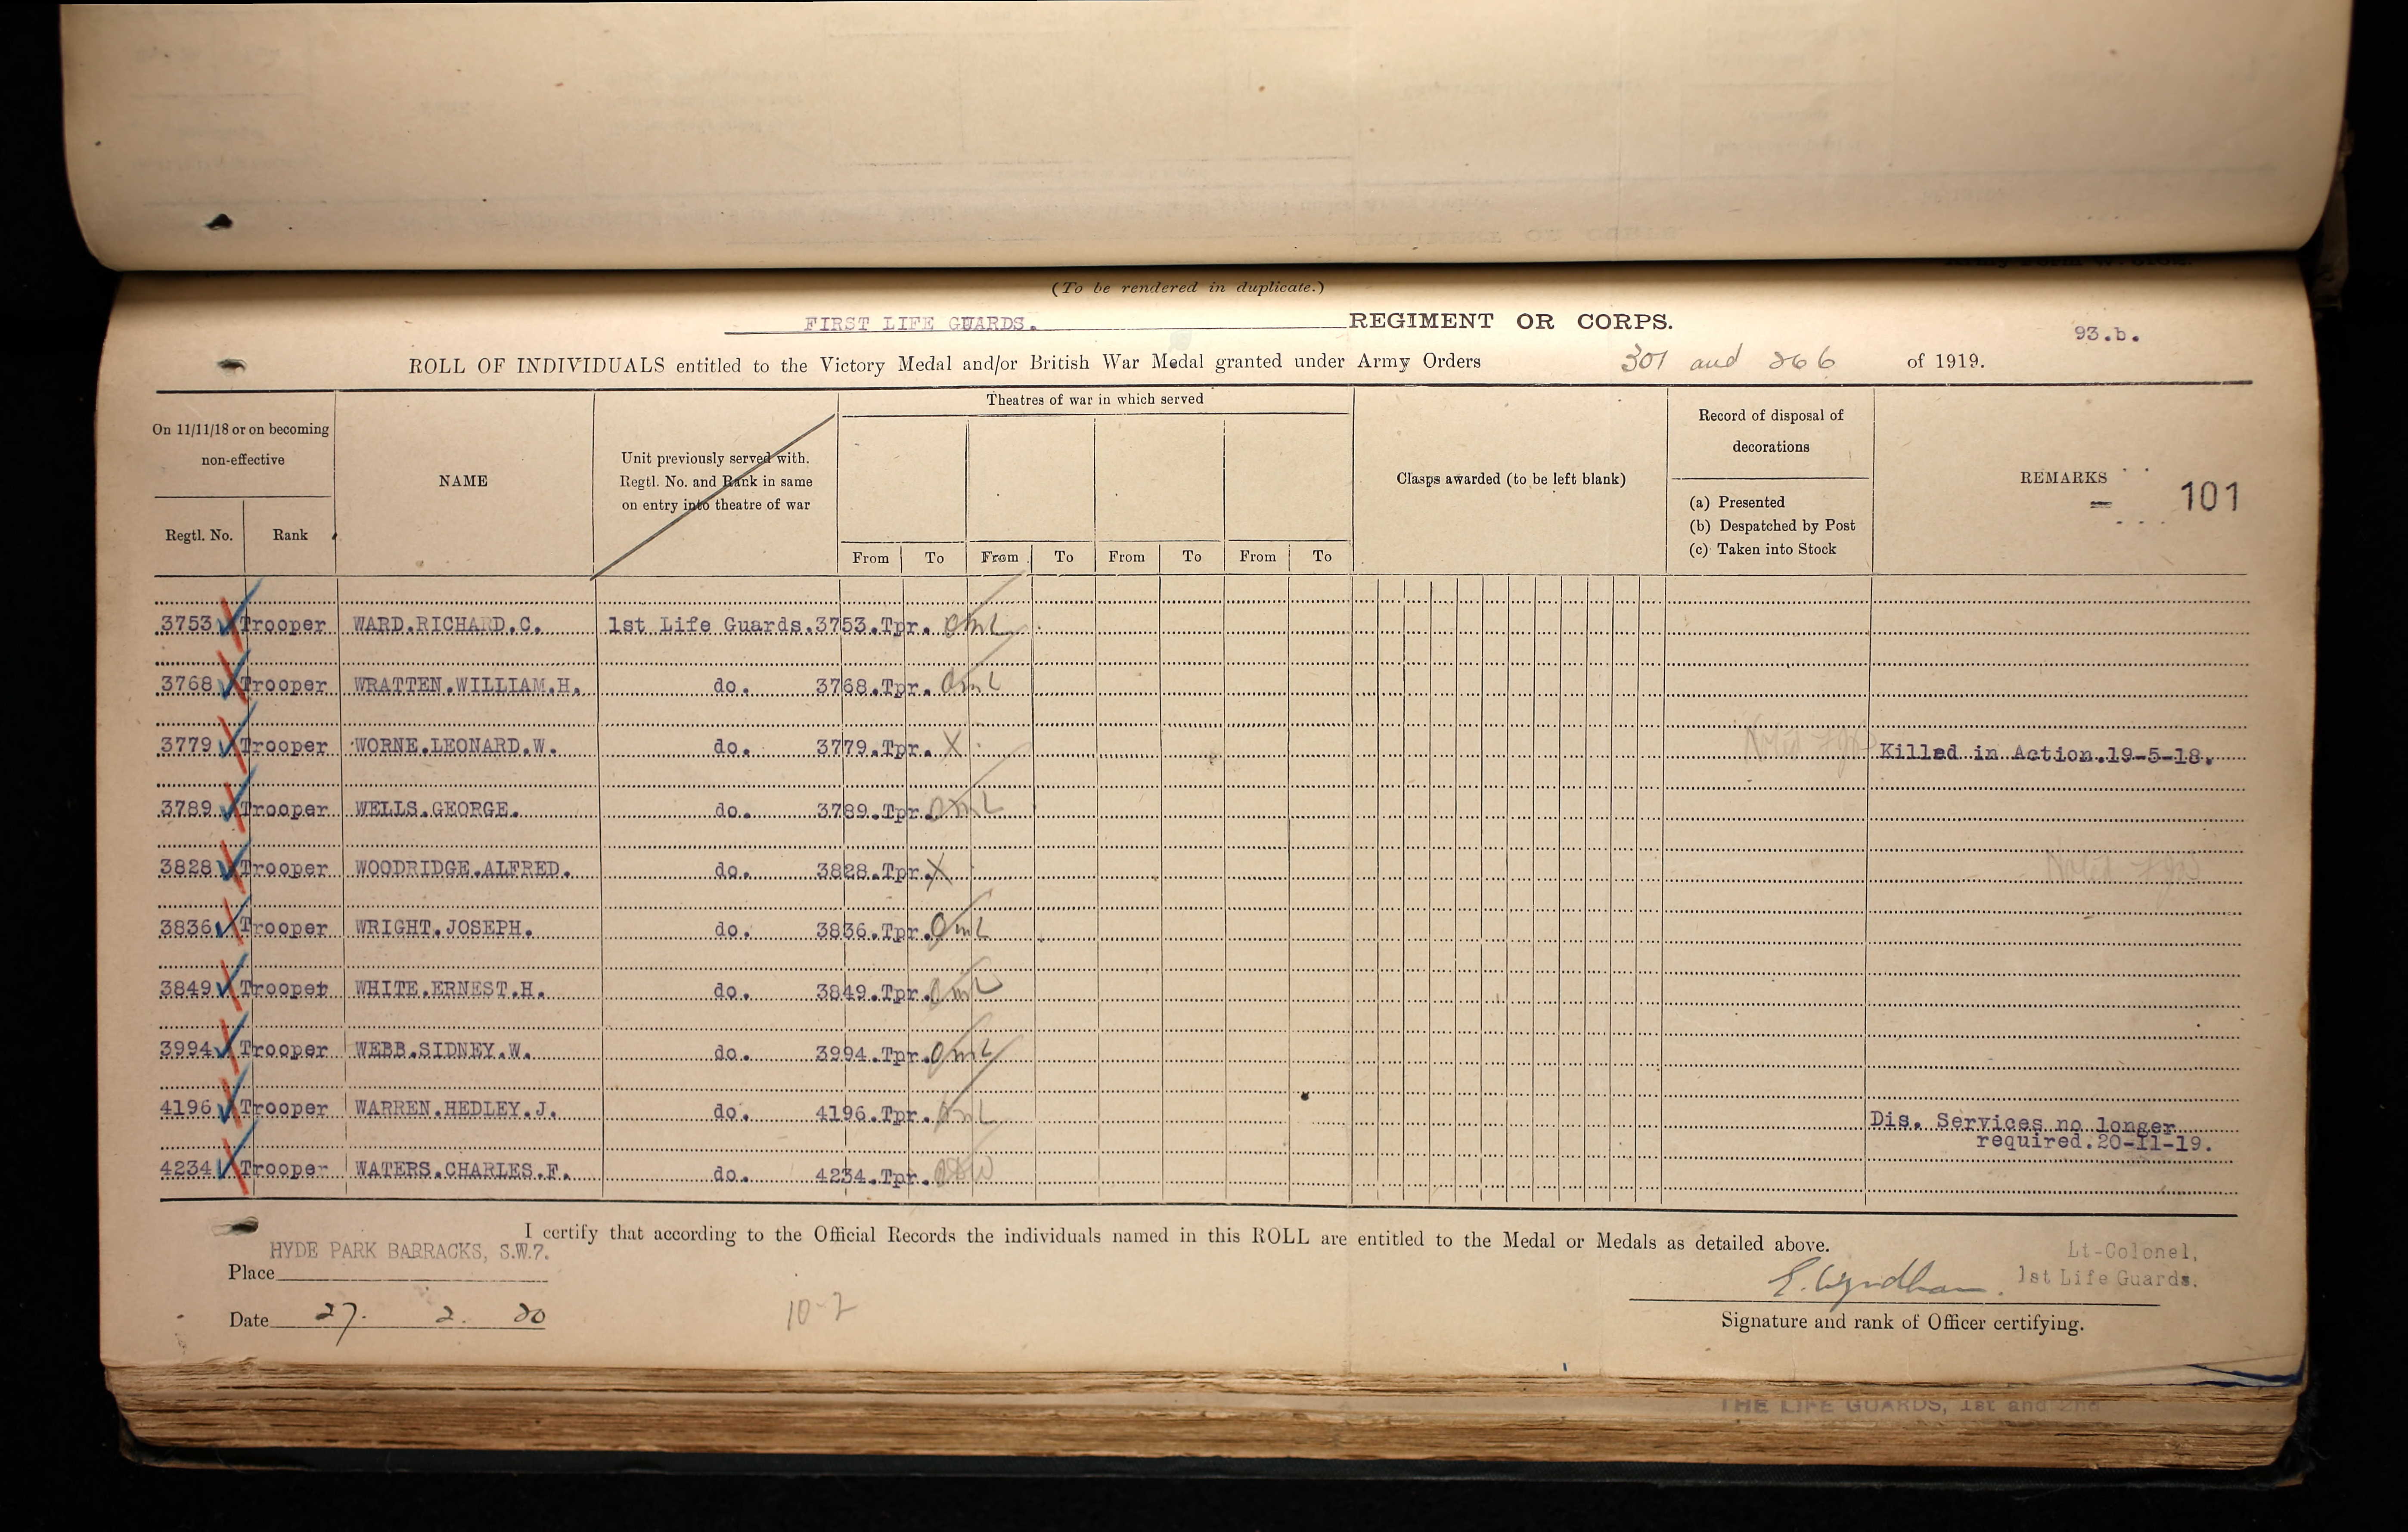 (To be rendered in duplicate.)
FIRST LIFE GUARDS. REGIMENT OR CORPS.
93.b.
ROLL OF INDIVIDUALS entitled to the Victory Medal and/or British War Medal granted under Army Orders 301 and 266 of 1919.
On 11/11/18 or on becoming
non-effective
Regtl. No.
Rank
NAME
Unit previously served with.
Regtl. No. and Rank in same
on entry into theatre of war
Theatres of war in which served
From To From To From To From To
Clasps awarded (to be left blank)
Record of disposal of
decorations
(a) Presented
(b) Despatched by Post
(c) Taken into Stock
REMARKS
101
3753 Trooper WARD.RICHARD.C. 1st Life Guards.3753.Tpr.
3768 Trooper WRATTEN.WILLIAM.H. do. 3768.Tpr.
3779 Trooper WORNE.LEONARD.W. do. 3779.Tpr. X Killed in Action.19-5-18.
3789 Trooper WELLS.GEORGE. do. 3789.Tpr.
3828 Trooper WOODRIDGE.ALFRED. do. 3828.Tpr. X
3836 Trooper WRIGHT.JOSEPH. do. 3836.Tpr.
3849 Trooper WHITE.ERNEST.H. do. 3849.Tpr.
3994 Trooper WEBB.SIDNEY.W. do. 3994.Tpr.
4196 Trooper WARREN.HEDLEY.J. do. 4196.Tpr. Dis. Services no longer
required.20-11-19.
4234 Trooper WATERS.CHARLES.F. do. 4234.Tpr.
I certify that according to the Official Records the individuals named in this ROLL are entitled to the Medal or Medals as detailed above.
HYDE PARK BARRACKS, S.W.7.
Place
Date 27. 2. 20
10-2
E. Wyndham.
Lt-Colonel,
1st Life Guards.
Signature and rank of Officer certifying.
THE LIFE GUARDS, 1st and 2nd